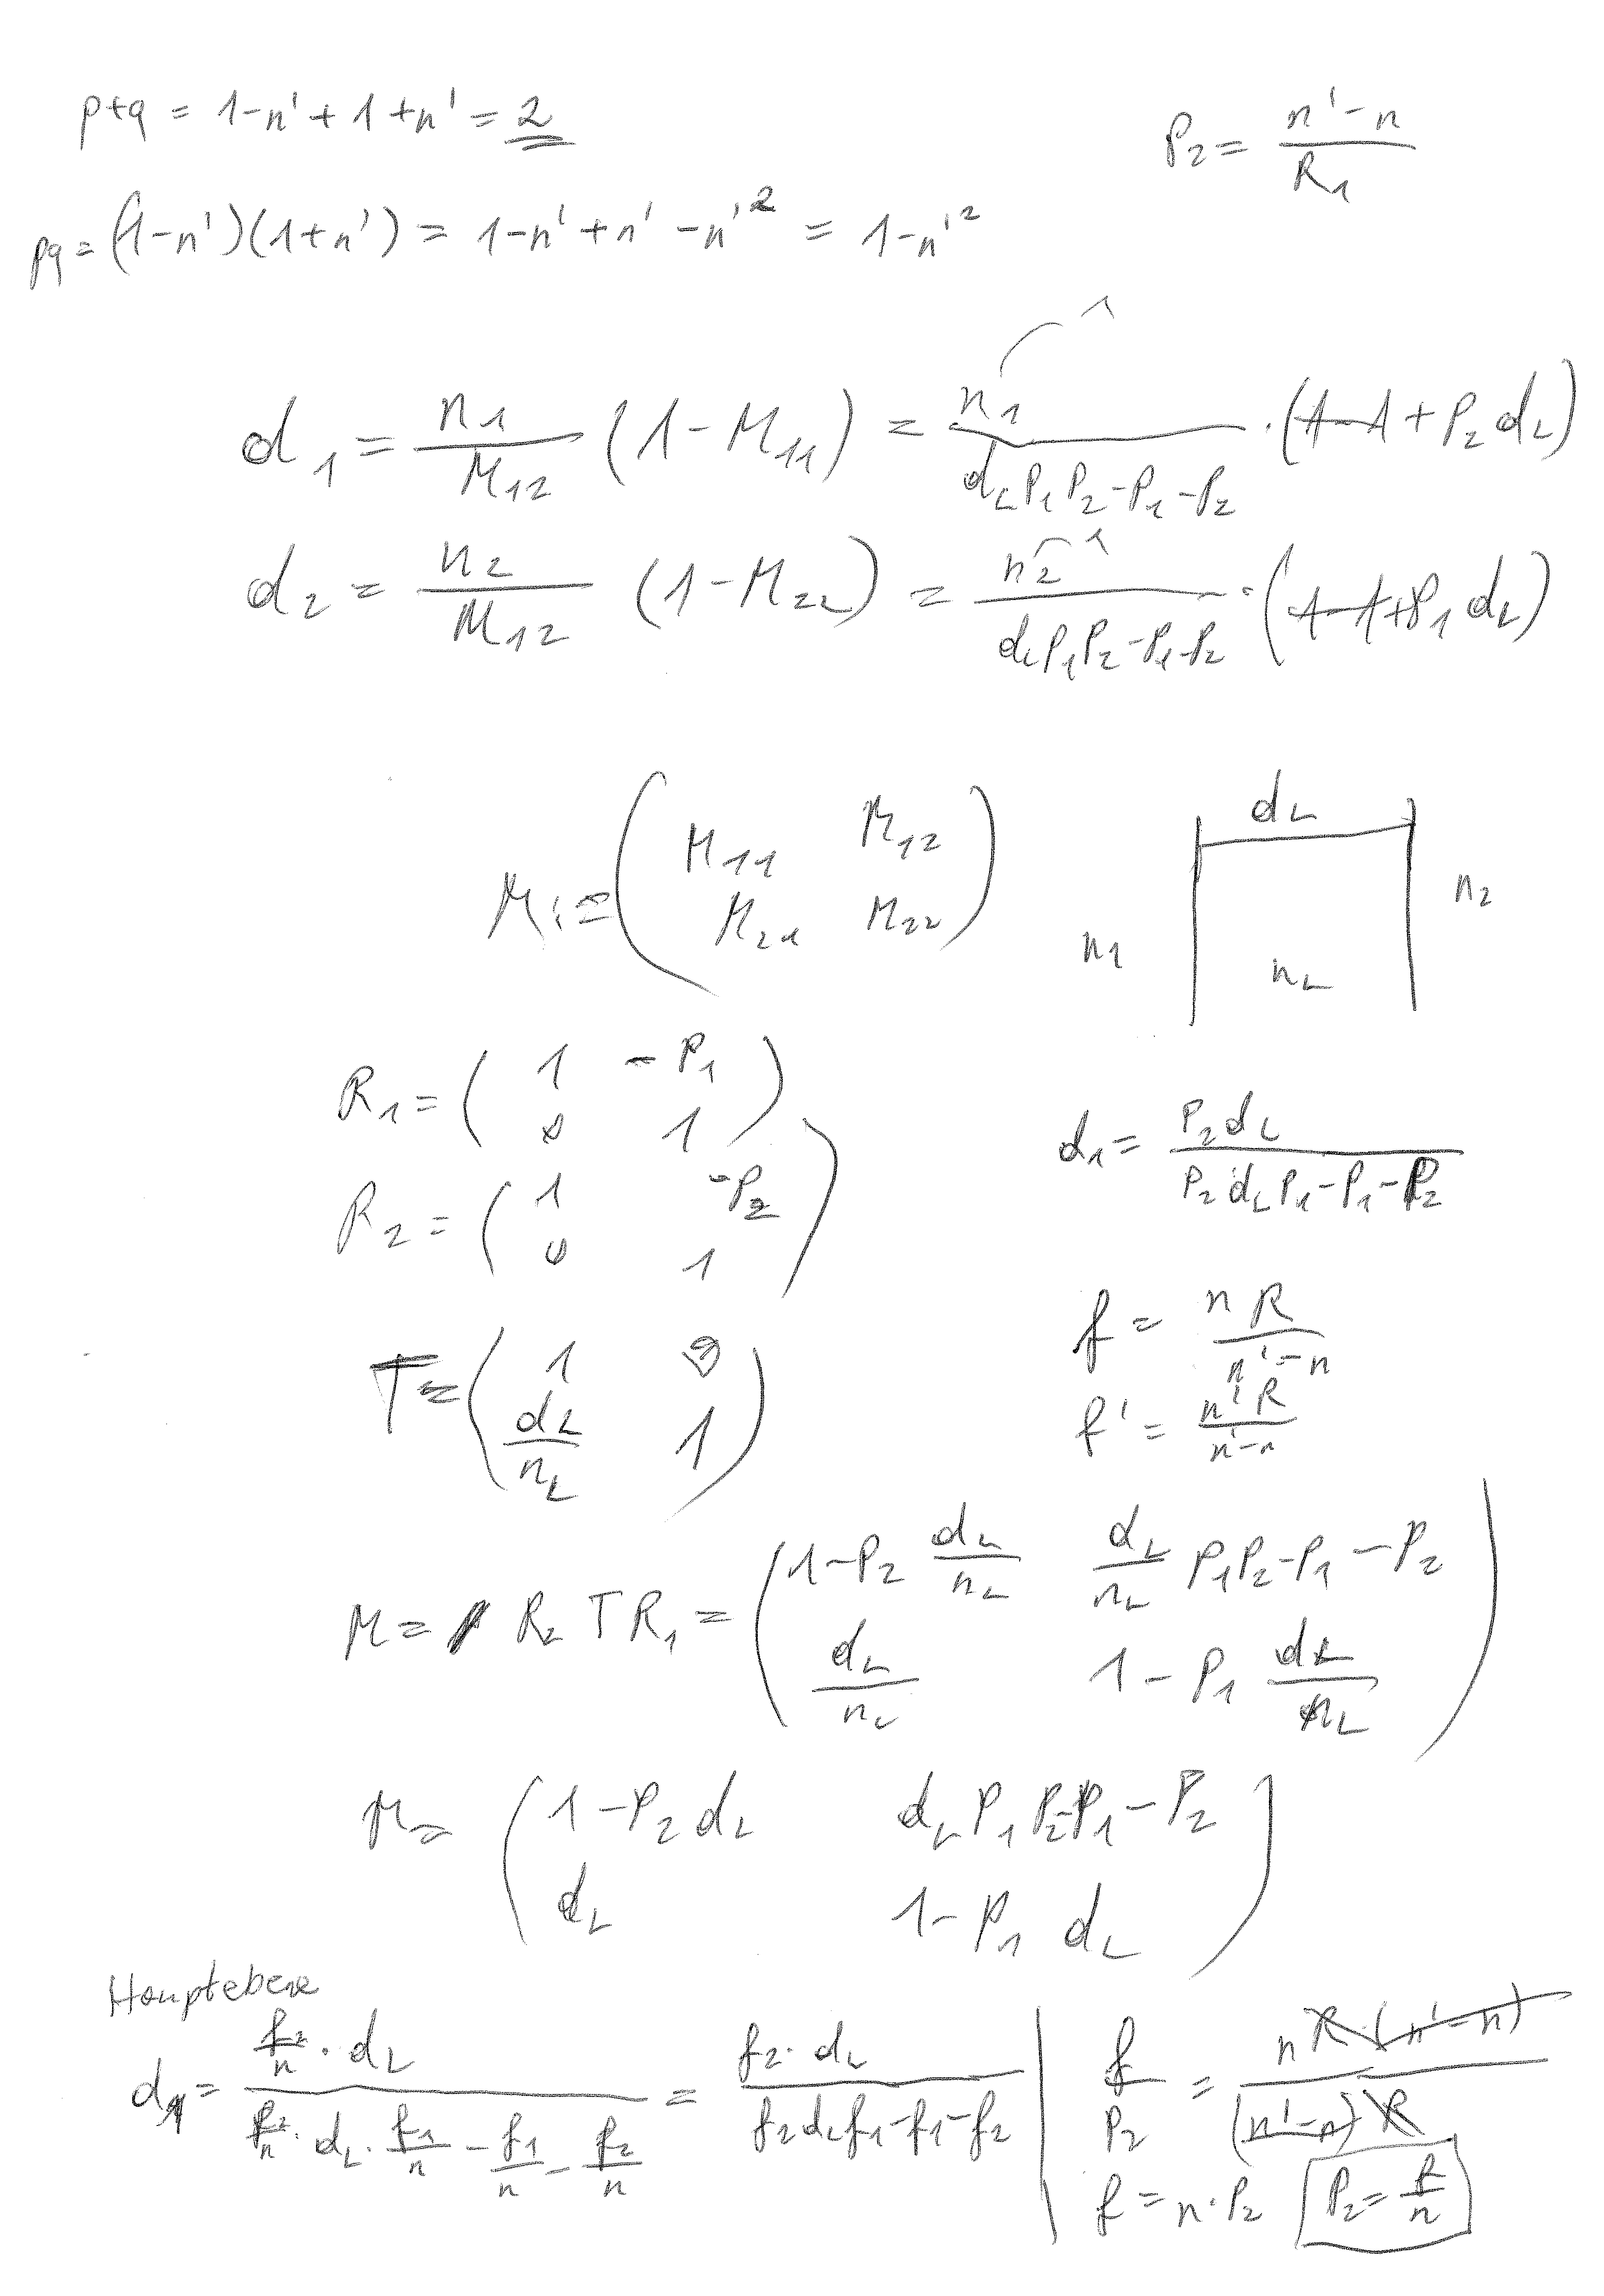 p+q = 1-n' + 1 + n' = 2
P₂ = (n' - n)/R₁
pq = (1-n')(1+n') = 1-n'+n' - n'² = 1-n'²
1
d₁ = n₁/M₁₂ (1-M₁₁) = n₁/(d_L P₁P₂-P₁-P₂) · (1-1+P₂d_L)
1
d₂ = n₂/M₁₂ (1-M₂₂) = n₂/(d_L P₁P₂-P₁-P₂) · (1-1+P₁d_L)
d_L
M := (M₁₁ M₁₂
M₂₁ M₂₂)
n₁ n_L n₂
R₁ = (1 -P₁
0 1)
d₁ = P₂d_L/(P₂d_LP₁-P₁-P₂)
R₂ = (1 -P₂
0 1)
f = nR/(n'-n)
T = (1 0
d_L/n_L 1)
f' = n'R/(n'-n)
M = R₂ T R₁ = (1-P₂ d_L/n_L d_L/n_L P₁P₂-P₁-P₂
d_L/n_L 1-P₁ d_L/n_L)
M = (1-P₂d_L d_L P₁P₂-P₁-P₂
d_L 1-P₁ d_L)
Hauptebene
d₁ = (f₂/n · d_L)/(f₂/n · d_L · f₁/n - f₁/n - f₂/n) = (f₂ · d_L)/(f₂d_Lf₁-f₁-f₂) | f/P₂ = nR·(n'-n)/((n'-n)R)
f = n·P₂ P₂ = f/n